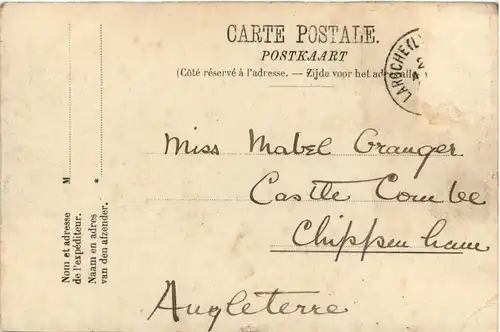 CARTE POSTALE.
POSTKAART
(Côté réservé à l'adresse. — Zijde voor het
LAROCHE
Miss Mabel Granger
Castle Combe
Chippenham
Angleterre
M
*
Nom et adresse
de l'expéditeur.
Naam en adres
van den afzender.